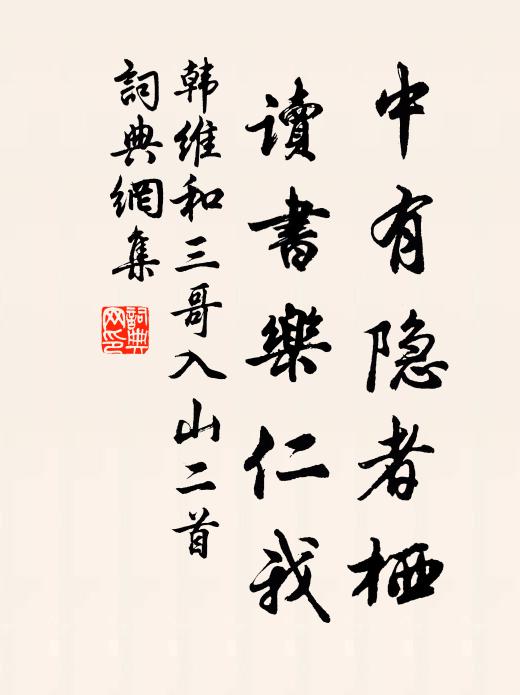 中有隐者栖
讀書樂仁我
韩維和三哥入山二首
詞典網集
詞典网印